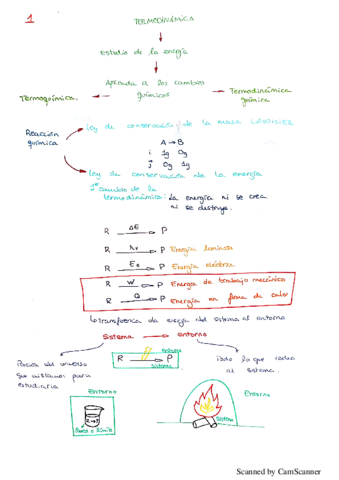 1
TERMODINÁMICA
Estudio de la energía
Aplicada a los cambios
químicos
Termoquímica.
Termodinámica
química
Reacción
química
Ley de conservación de la masa LAVOISIER
A → B
i 1g 0g
f 0g 1g
Ley de conservación de la energía
1º
de la
termodinámica: La energía ni se crea
ni se destruye.
R ΔE P
R hν P Energía luminosa
R Ee P Energía eléctrica
R W P Energía de trabajo mecánico
R Q P Energía en forma de calor
transferencia de energía del sistema al entorno
Sistema entorno
Porción del universo
que aislamos para
estudiarla
R P
entorno
sistema
Todo lo que rodea
al sistema.
Entorno
R→P
Entorno
Scanned by CamScanner